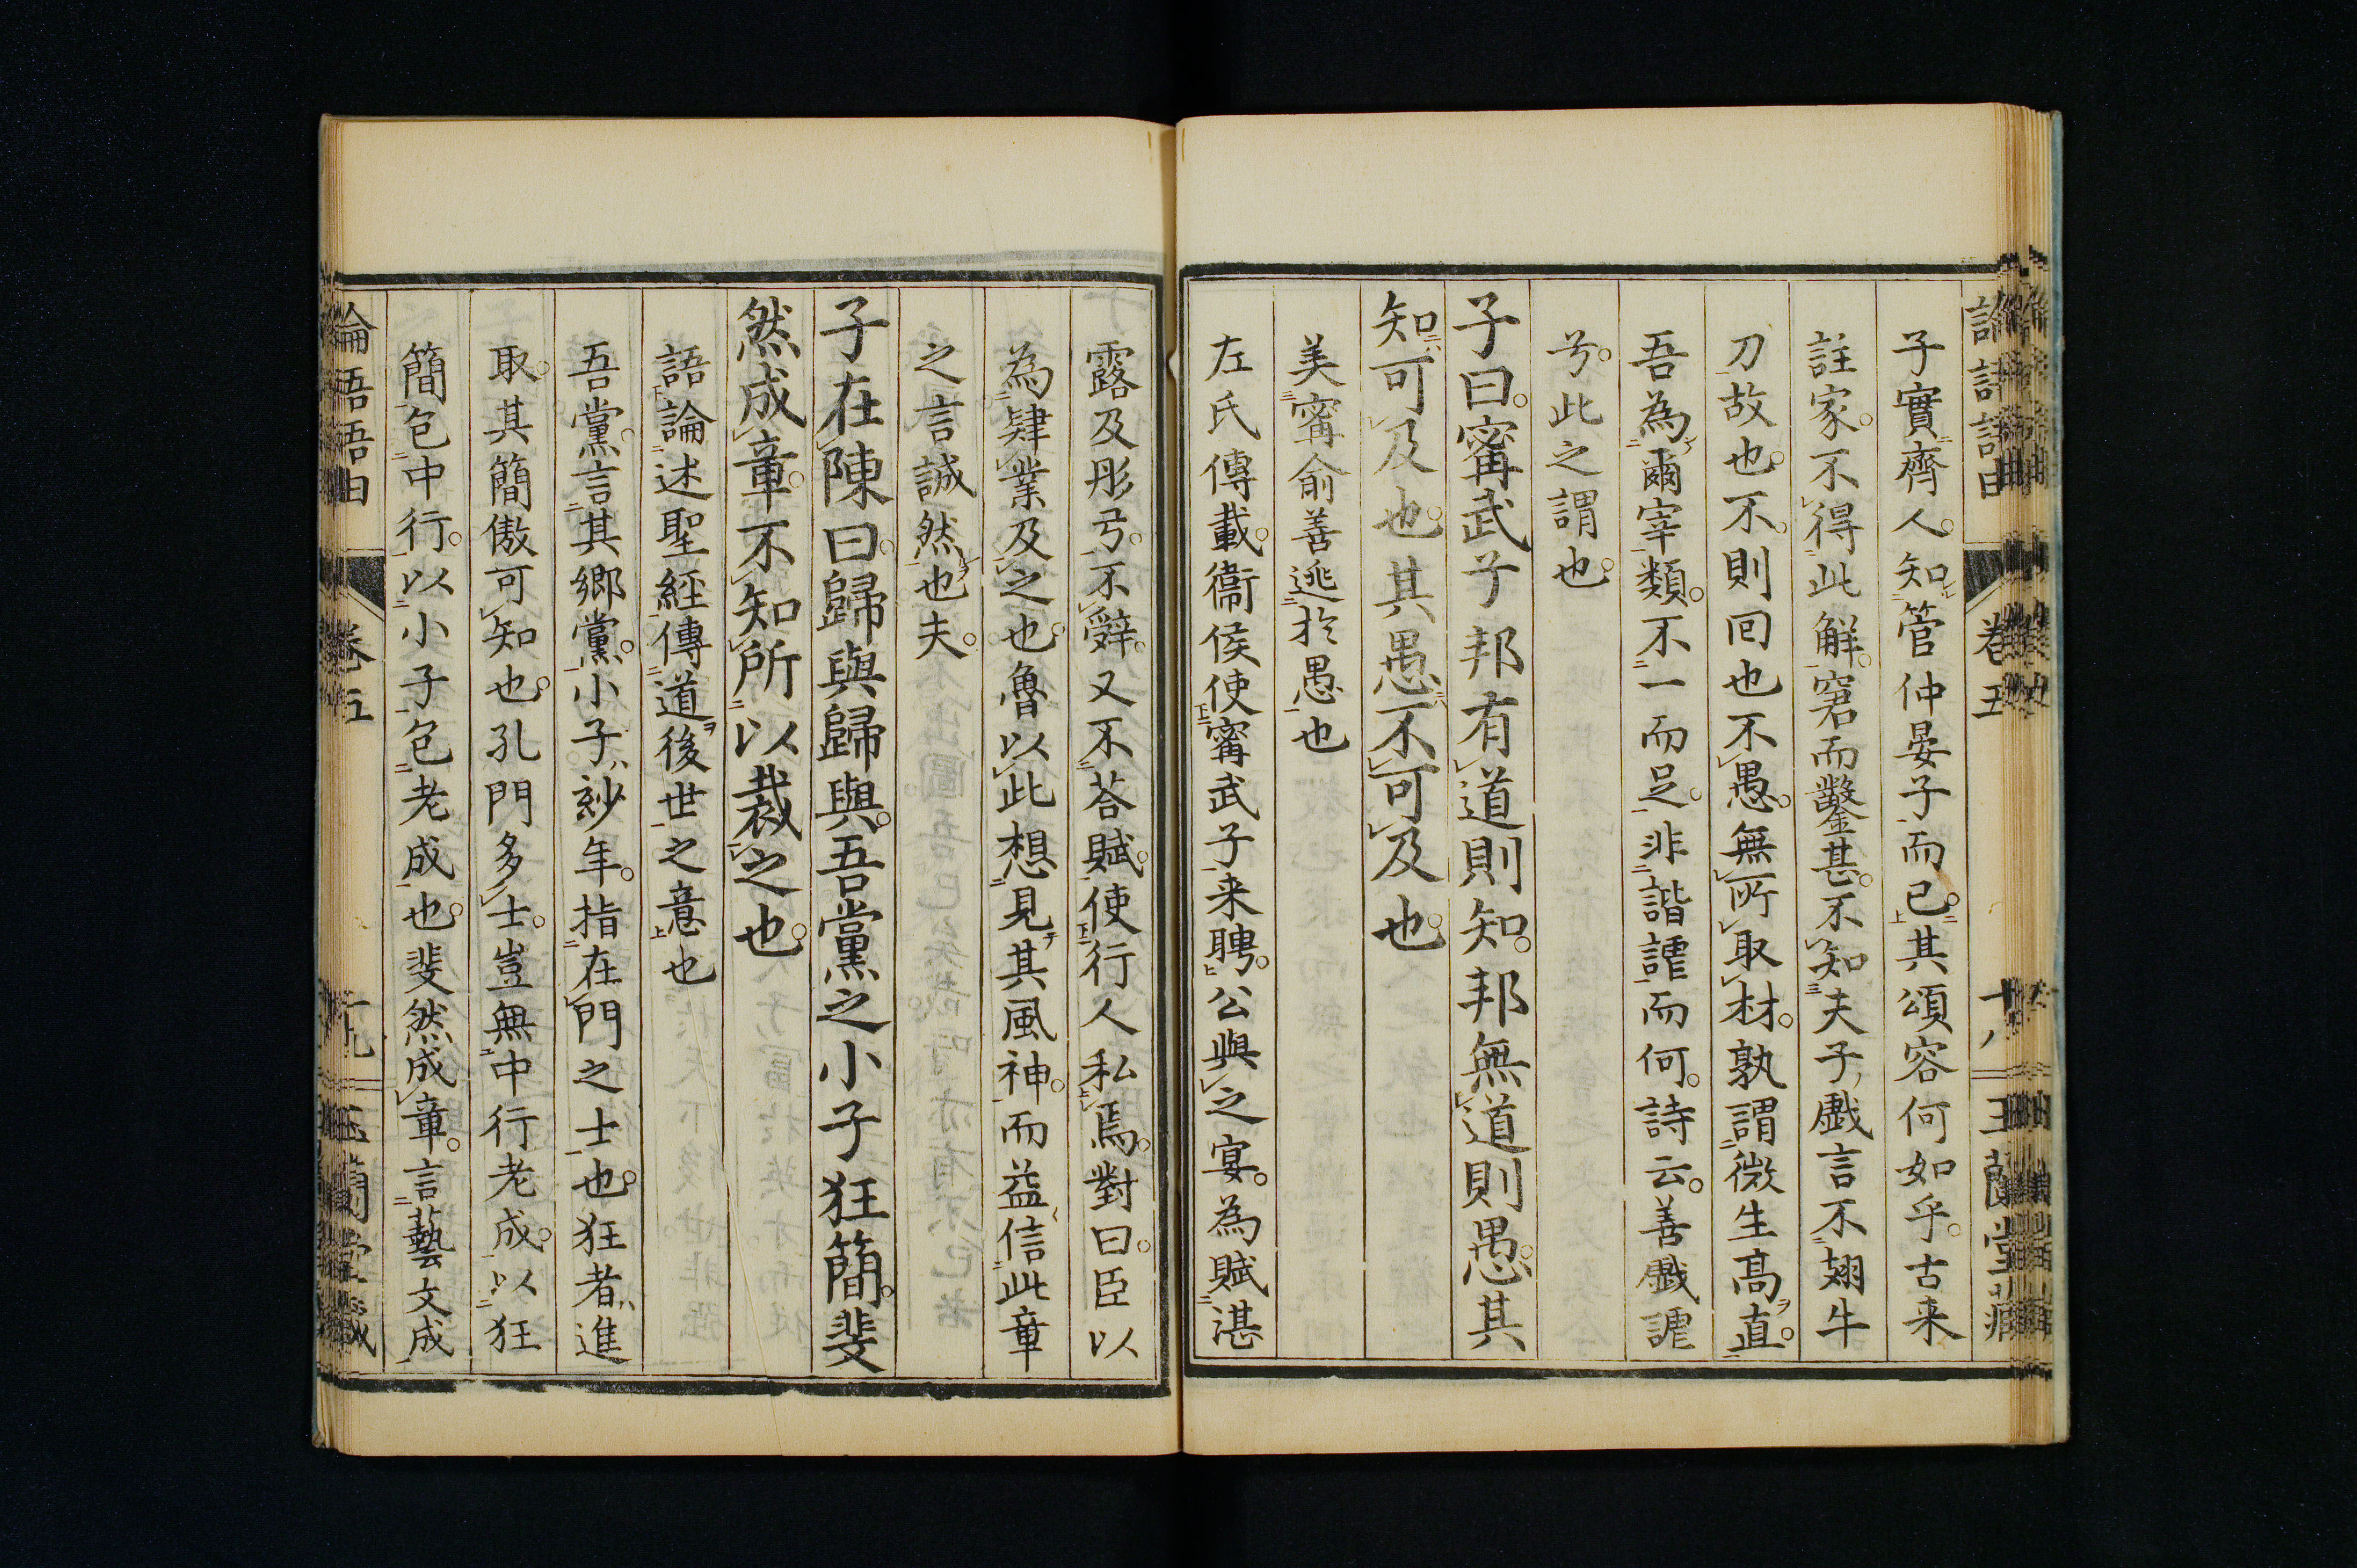 論語語由 卷五 十八 玉蘭堂藏
子實齊人。知管仲晏子而已。其頌容何如乎。古来
註家。不得此解。窘而鑿甚。不知夫子戲言不翅牛
刀故也。不則回也不愚。無所取材。孰謂微生高直。
吾為爾宰類。不一而足。非諧謔而何。詩云。善戲謔
兮。此之謂也。
子曰。甯武子邦有道則知。邦無道則愚。其
知可及也。其愚不可及也。
美甯俞善逃於愚也
左氏傳載。衞侯使甯武子来聘。公與之宴。為賦湛
露及彤弓。不辭。又不荅賦。使行人私焉。對曰。臣以
為肄業及之也。魯以此想見其風神。而益信此章
之言誠然也夫。
子在陳曰。歸與歸與。吾黨之小子狂簡。斐
然成章。不知所以裁之也。
語論述聖經傳道後世之意也
吾黨。言其鄉黨。小子。玅年。指在門之士也。狂者進
取。其簡傲可知也。孔門多士。豈無中行老成。以狂
簡包中行。以小子包老成也。斐然成章。言藝文成
論語語由 卷五 十九 玉蘭堂藏